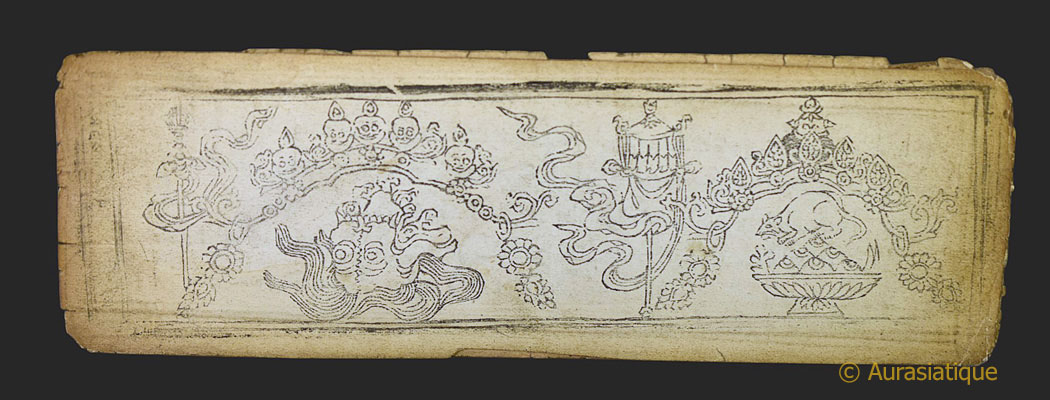 © Aurasiatique